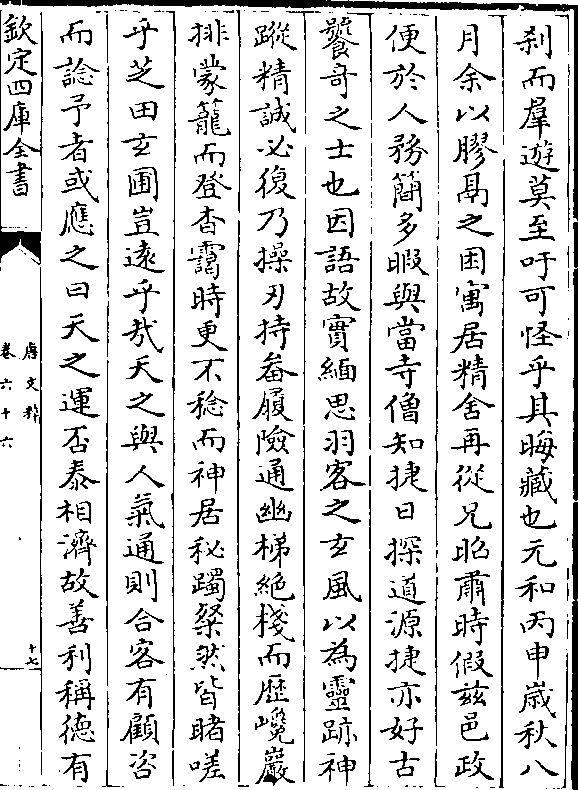 刹而羣遊莫至吁可怪乎其晦藏也元和丙申嵗秋八
月余以膠鬲之困寓居精舍再從兄昭肅時假兹邑政
便於人務簡多暇與當寺僧知捷日探道源捷亦好古
饕奇之士也因語故實緬思羽客之玄風以為靈跡神
蹤精誠必復乃操刃持畚履險通幽梯絶棧而歴巉巖
排蒙籠而登杳靄時更不稔而神居秘躅粲然皆睹嗟
乎芝田玄圃豈遠乎哉天之與人氣通則合客有顧咨
而諗予者或應之曰天之運否泰相濟故善利稱徳有
欽定四庫全書
唐文粹
卷六十六
十七